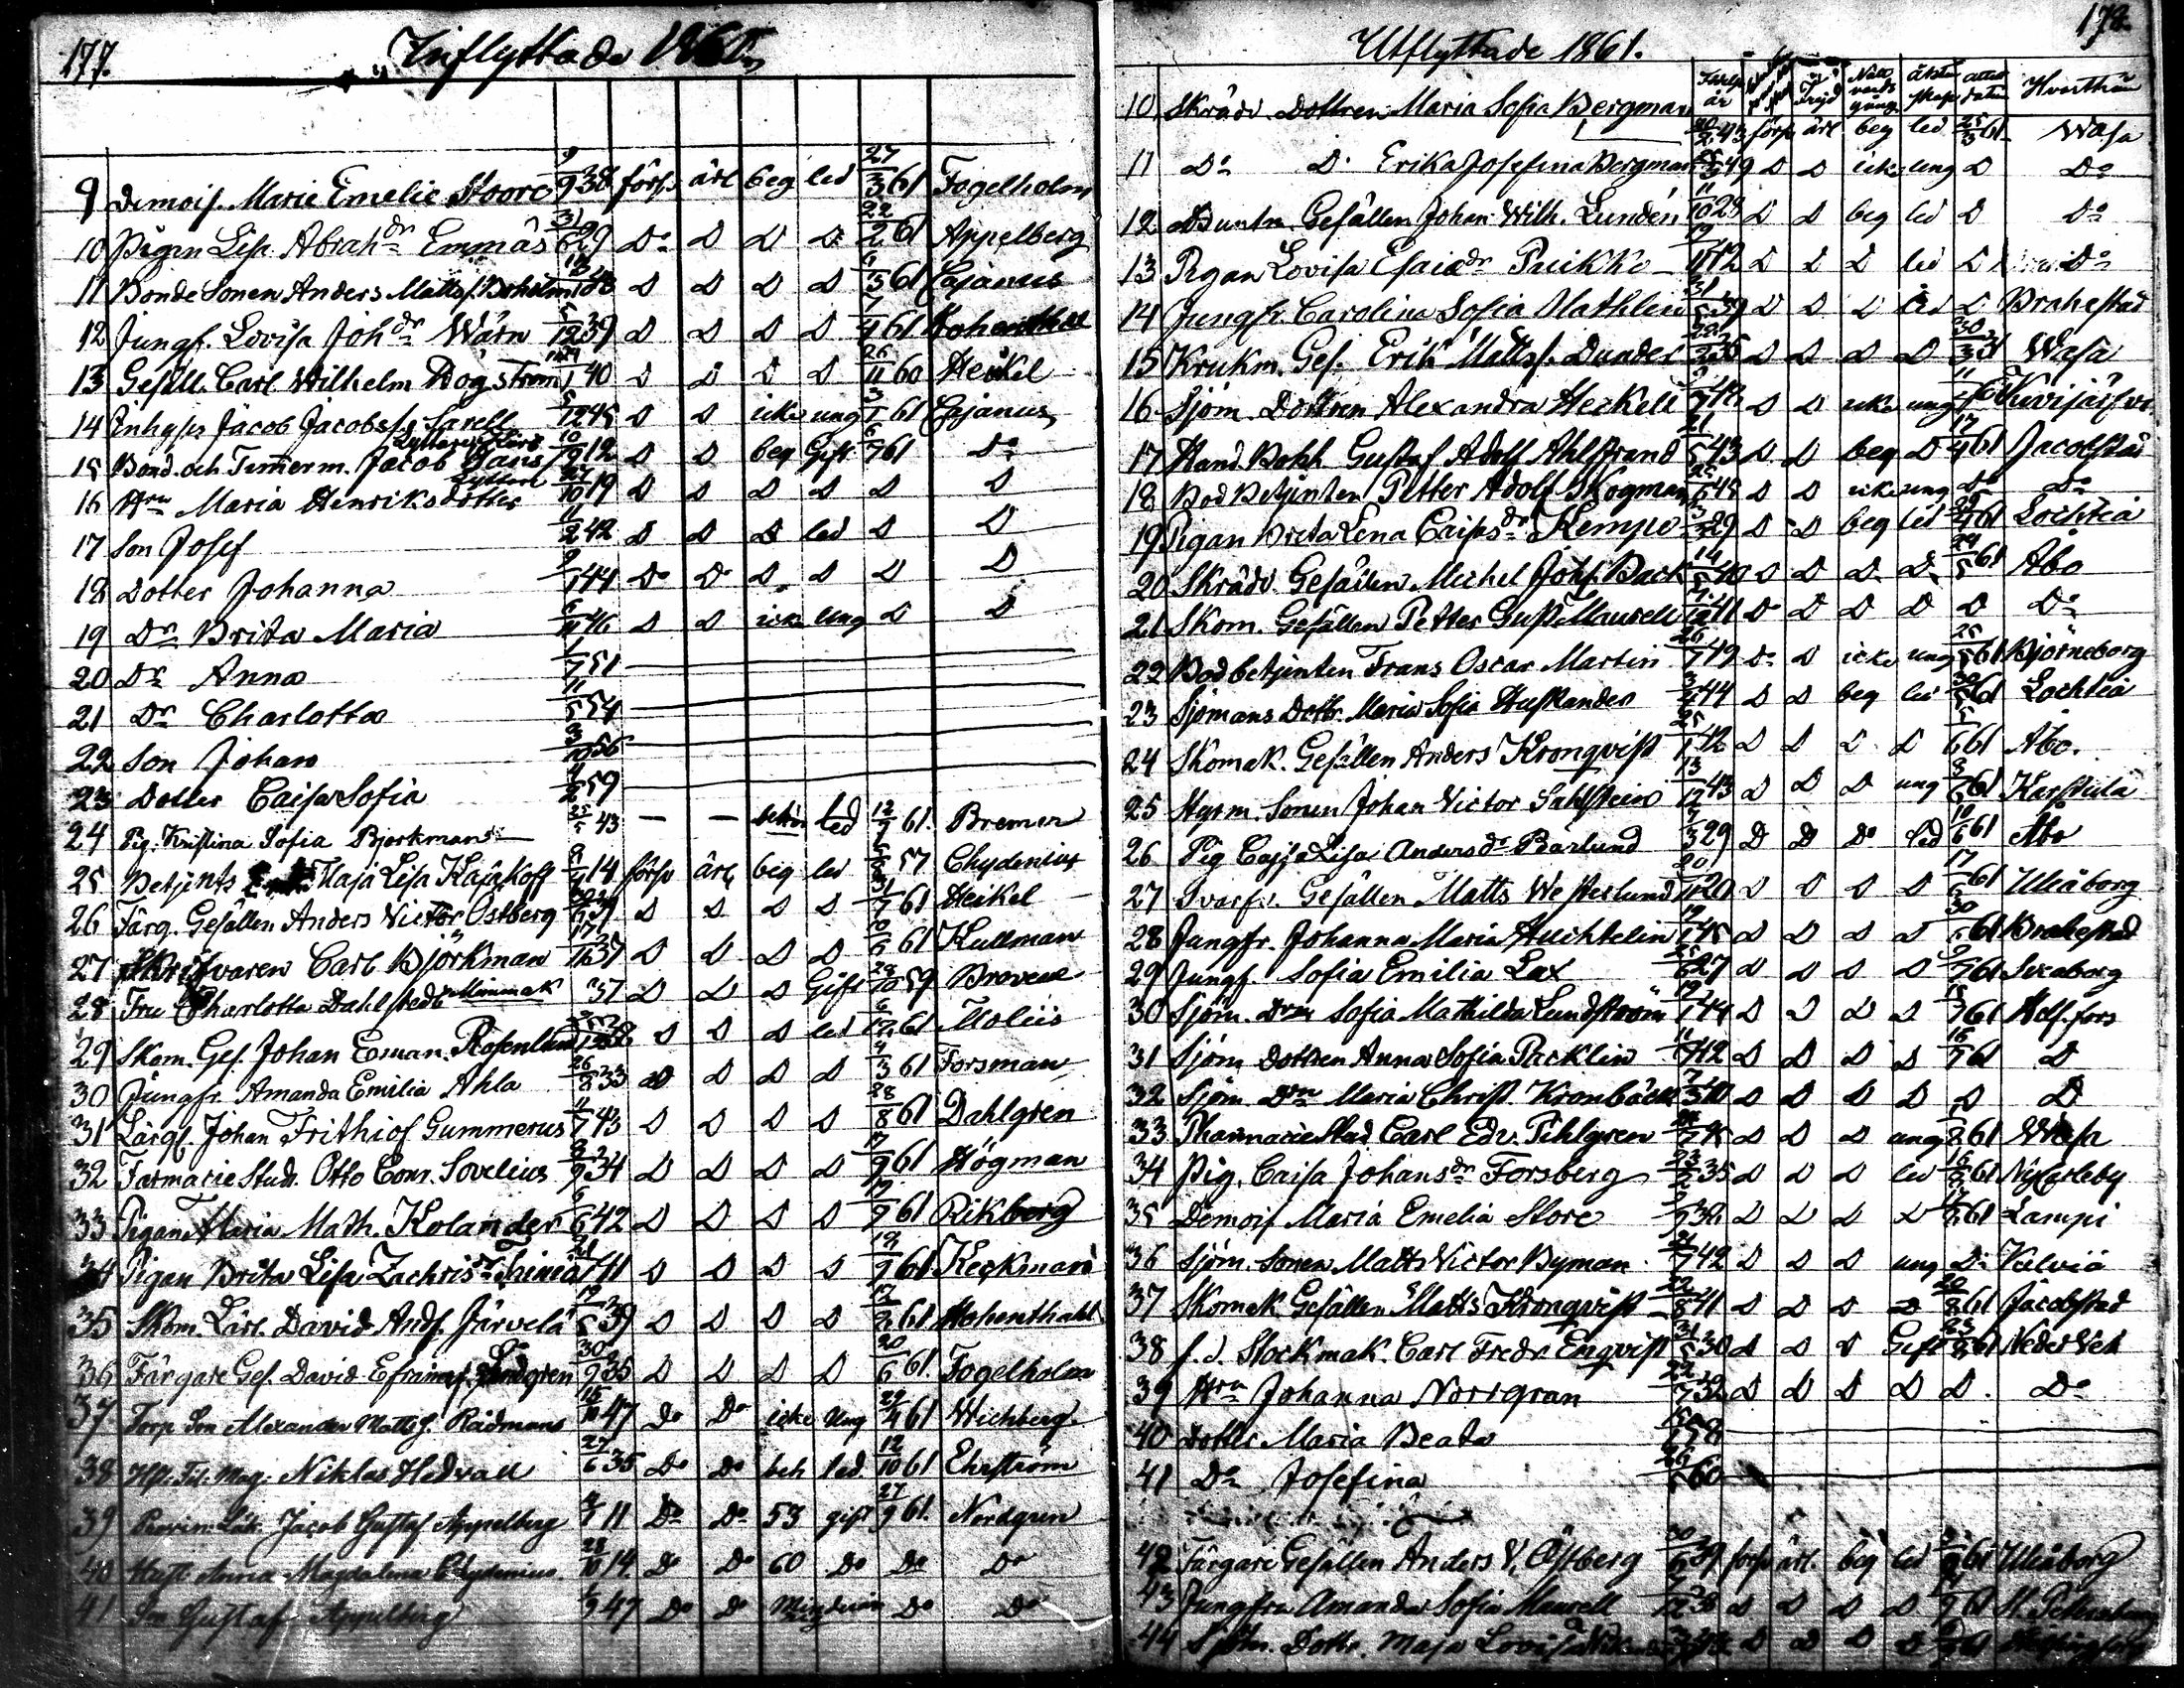 177. Inflyttade 1861.
9 Demois. Marie Emelie Stoore 9/9 38 förs. ärl beg led 27/3 61 Fogelholm
10 Pigan Lisa Abrah.dr Emmäs 29 Do D D D 22/2 61 Appelberg
11 Bonde Sonen Anders Matts. D D D D 61 Cajanus
12 Jungf. Lovisa Joh.dr Wärn 12 39 D D D D 7/4 61
13 Gesäll. Carl Wilhelm Högström 1 40 D D D D 26/11 60 Heikel
14 Inhys Jacob Jacobss. Sarell 5/12 45 D D icke ung 3/1 61 Cajanus
15 Bond. och Timmerm. Jacob 10/9 12 D D beg Gift 6/7 61 Do
16 Hru Maria Henriksdotter 27/10 19 D D D D D D
17 Son Josef 11/2 42 D D D led D D
18 Dotter Johanna 9/1 44 Do Do D D D D
19 Dr Brita Maria 6/11 46 D D icke ung D D
20 Dr Anna 1/7 51
21 Dr Charlotta 11/5 54
22 Son Johan 3/10 56
23 Dotter Caisa Sofia 4/2 59
24 Pig. Kristina Sofia Bjorkman 25/5 43 — — led 12/7 61. Bremer
25 Betjents Maja Lisa 14 förs ärl beg led 57 Chydenius
26 Färg. Gesällen Anders Victor Östberg 30/6 39 D D D D 61 Heikel
27 Skrifvaren Carl Björkman 17/11 37 D D D D 61 Kullman
28 Fru Charlotta Dahlstedt 37 D D D Gift 28/10 59
29 Skom. Ges. Johan Eman. Rosenlund D D D led 6/12 61 Moliis
30 Jungfr. Amanda Emilia Ahla 26/8 33 D D D D 4/3 61 Forsman
31 Lärgs. Johan Frithiof Gummerus 11/7 43 D D D D 28/8 61 Dahlgren
32 Farmacie Stud. Otto Conr. Sovelius 9 34 D D D D 17/9 61 Högman
33 Pigan Maria Math. Kolander 6/6 42 D D D D 19/9 61 Rikberg
34 Pigan Brita Lisa Zachris.dr 21/1 41 D D D D 19/9 61 Keckman
35 Skom. Lärl. David Ands. Järvelä 19/5 39 D D D D 17/2 61 Hohenthahl
36 Färgare Ges. David Efraims. 30/9 35 D D D D 20/6 61. Fogelholm
37 Torp. Son Alexander Matts s. Rådmans 16/10 47 Do Do icke ung 29/4 61 Wichberg
38 Niklas Hedvall 27/6 35 Do Do beh led 12/10 61 Ehrström
39 Provin. Läk. Jacob Gustaf Appelberg 11 Do Do 53 gift 27/9 61. Nordgren
40 Hust. Anna Magdalena Chydenius 28/10 14 Do Do 60 Do Do Do
41 Son Gustaf Appelberg 1/3 47 Do Do Do Do
Utflyttade 1861. 178.
Födelse år Frejd Natt vards gång äktenskap attest datum Hvarthän
10 Skrädd. Dottren Maria Sofia Bergman 43 förs ärl beg led 25/3 61 Wasa
11 Do D. Erika Josefina Bergman 49 D D icke ung D Do
12 Buntm. Gesällen Johan Wilh. Lundén 11/10 28 D D beg led D Do
13 Pigan Lovisa Esaiædr Puikko 19/11 42 D D D led D Do
14 Jungfr. Carolina Sofia Nathlin 31/5 39 D D D led D Brahestad
15 Krukm. Ges. Erik Mattss. Dunder 36 D D D D 30/3 Wasa
16 Sjöm. Dottren Alexandra Heckell 42 D D icke ung
17 Hand. Bokh Gustaf Adolf Ahlstrand 21/5 43 D D beg D 17/4 61 Jacobstad
18 Bod Betjenten Petter Adolf Skogman 48 D D icke ung Do Do
19 Pigan Brita Lena Kempo 29 D D beg led 61 Lochteå
20 Skrädd. Gesällen Michel Johs. Back 14/5 40 D D D D 24/5 61 Åbo
21 Skom. Gesällen Petter Gust. Maurell 41 Do D D D D Do
22 Bodbetjenten Frans Oscar Martin 26/7 49 D D icke ung 25/5 61 Björneborg
23 Sjömans Dottr. Maria Sofia 44 D D beg led 30/5 61 Lochteå
24 Skomak. Gesällen Anders Kronqvist 25/1 42 D D D D 5/6 61 Åbo.
25 Hyrm. Sonen Johan Victor Sahlstein 13/12 43 D D D ung 8/6 61 Karstula
26 Pig Cajsa Lisa Anders.dr Bärlund 3 29 D D Do led 10/6 61 Åbo
27 Svarf.. Gesällen Matts Westerlund 20/11 20 D D D D 17/6 61 Uleåborg
28 Jungfr. Johanna Maria Huchtelin 19/1 45 D D D D 30/6 61 Brahestad
29 Jungf. Sofia Emilia Lax 25/6 27 D D D D 9/7 61 Sveaborg
30 Sjöm. Drn Sofia Mathilda Lundström 19/1 44 D D D D 15/7 61 Helsf.fors
31 Sjöm Dottren Anna Sofia Packlin 42 D D D D 16/7 61 D
32 Sjöm. Drn Maria Christ. Kronbäck 7/3 40 D D D D D D
33 Pharmacie Stud. Carl Edv. Pihlgren D D D ung 61 Wasa
34 Pig. Caisa Johans.dr Forsberg 23/2 35 D D D led 16/8 61 NyCarleby
35 Demois Maria Emelia Store 9/9 38 D D D D 17/8 61 Lampi
36 Sjöm. Sonen Matts Victor Byman 21/7 42 D D D ung Do Kelviå
37 Skomak. Gesällen Matts Kronqvist 22/8 41 D D D D 20/8 61 Jacobstad
38 f.d. Stockmak. Carl Fredr. Enqvist 31/5 30 D D D Gift 23/8 61 Neder Vetil
39 Hru Johanna Norrgran 22/7 32 D D D D D. Do
40 Dotter Maria Beata 58
41 Do Josefina 26/5 60
42 Färgare Gesällen Anders V. Östberg 30/6 39 förs ärl. beg led 61 Uleåborg
43 Jungfru Amanda Sofia Maurell D D D D 61 St. Petersburg
44 Dottr. Maja Lovisa D D D D